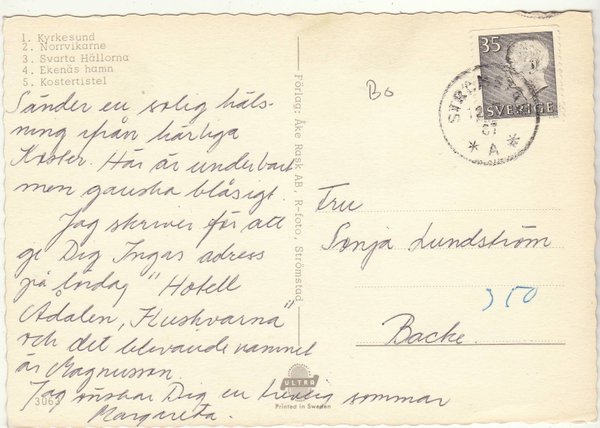 1. Kyrkesund
2. Norrvikarne
3. Svarta Hällorna
4. Ekenäs hamn
5. Kostertistel
Sänder en solig häls-
ning ifrån härliga
Koster. Här är underbart
men ganska blåsigt.
Jag skriver för att
ge Dig Ingas adress
på lördag "Hotell
Ådalen, Kuskvarna"
och det blevande namnet
är Magnusson
Jag önskar Dig en trevlig sommar
Margareta.
3063
Förlag: Åke Rask AB, R-foto, Strömstad
ULTRA
Printed in Sweden
Bo
35
SVERIGE
67
* A *
Fru
Sonja Lundström
350
Backe.